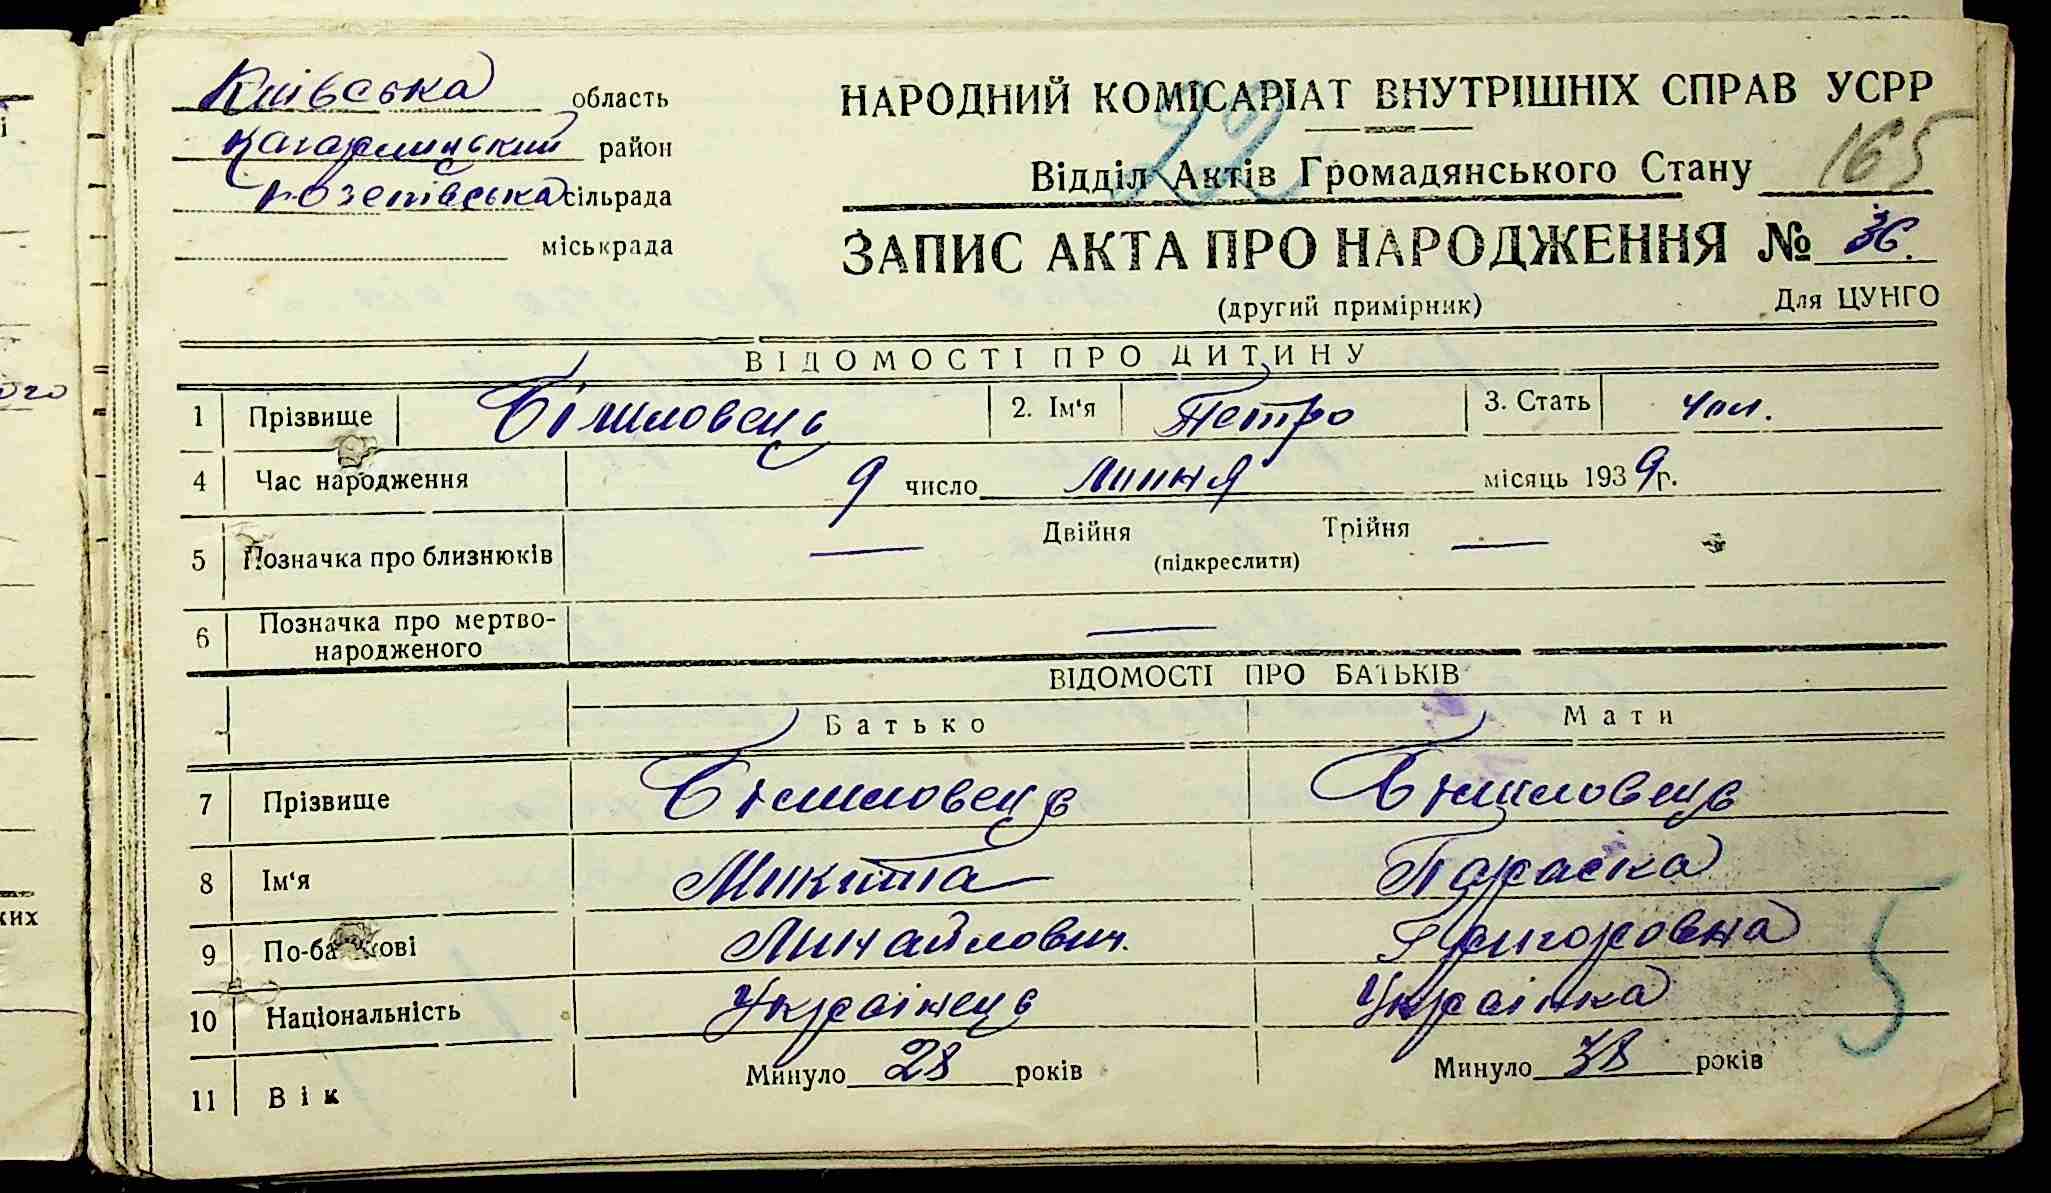 Київська область
Кагарлицький район
сільрада
міськрада
НАРОДНИЙ КОМІСАРІАТ ВНУТРІШНІХ СПРАВ УСРР
22
Відділ Актів Громадянського Стану 165
ЗАПИС АКТА ПРО НАРОДЖЕННЯ № 36.
(другий примірник) Для ЦУНГО
ВІДОМОСТІ ПРО ДИТИНУ
1 Прізвище 2. Ім'я Петро 3. Стать чол.
4 Час народження 9 число липня місяць 1939 р.
5 Позначка про близнюків — Двійня Трійня —
(підкреслити)
6 Позначка про мертво-
народженого —
ВІДОМОСТІ ПРО БАТЬКІВ
Батько Мати
7 Прізвище
8 Ім'я Микита Параска
9 По-батькові Михайлович. Григоровна
10 Національність Українець Українка
11 Вік Минуло 28 років Минуло 38 років
5
ого
ких